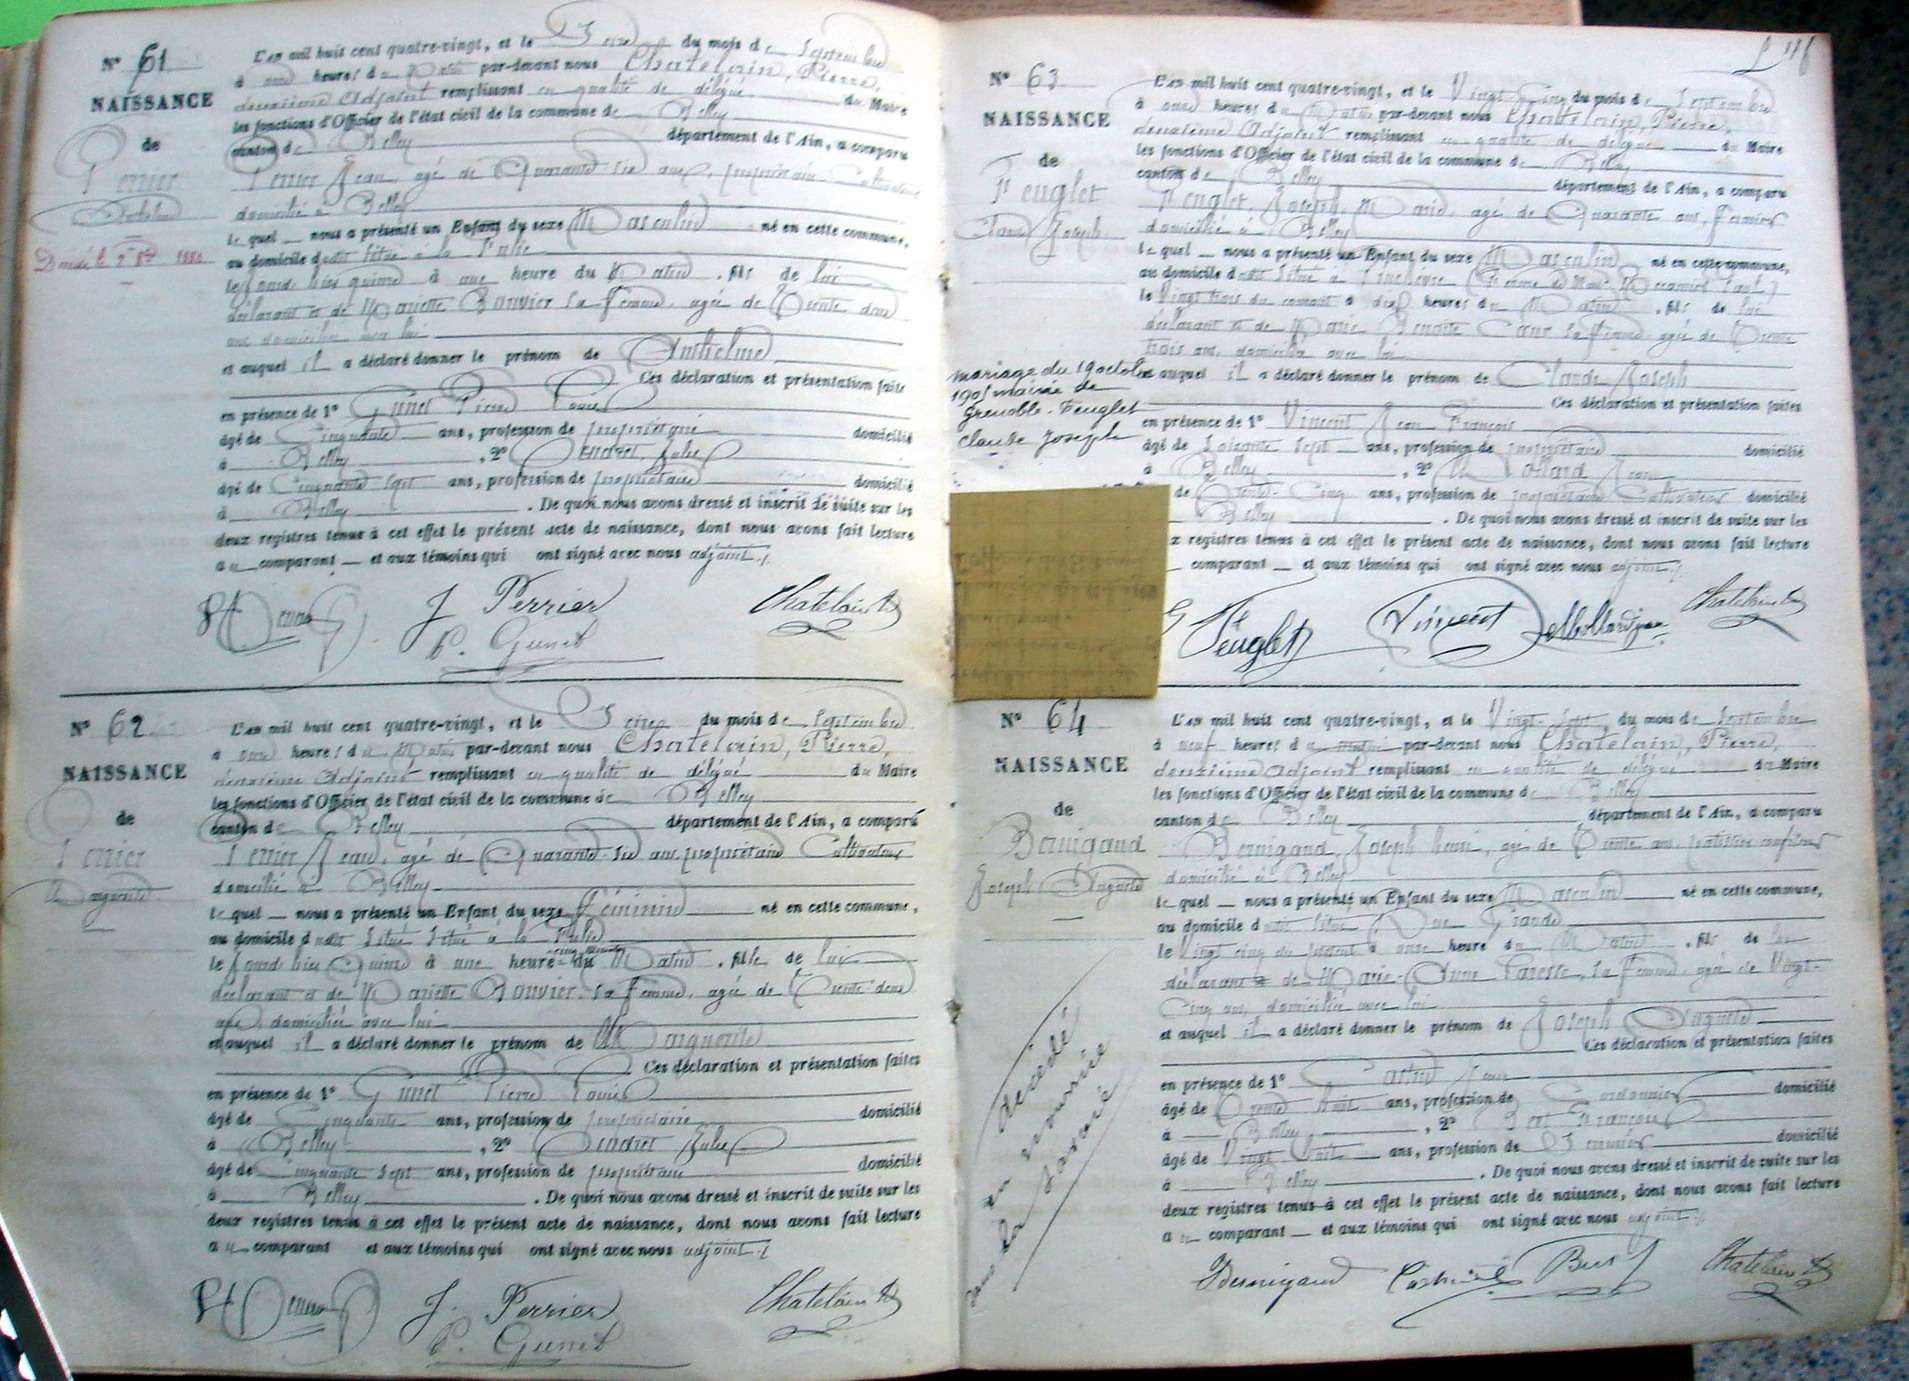 Nº 61
NAISSANCE
de
Perrier
Anthelme
L'an mil huit cent quatre-vingt, et le Seize du mois de Septembre
à onze heures du Matin par-devant nous Chatelain, Pierre,
deuxième Adjoint remplissant en qualité de délégué du Maire
les fonctions d'Officier de l'état civil de la commune de Belley
canton de Belley département de l'Ain, a comparu
Perrier Jean, agé de Quarante six ans, propriétaire Cultivateur
domicilié à Belley
lequel nous a présenté un Enfant du sexe Masculin né en cette commune,
au domicile situé à la
le jourd'hier quinze à une heure du Matin, fils de lui
déclarant et de Mariette Bouvier sa femme, agée de Trente deux
ans domiciliée avec lui
et auquel il a déclaré donner le prénom de Anthelme
Ces déclaration et présentation faites
en présence de 1º Gunet Pierre Louis
âgé de Cinquante ans, profession de propriétaire domicilié
à Belley, 2º Jules
âgé de Cinquante sept ans, profession de propriétaire domicilié
à Belley. De quoi nous avons dressé et inscrit de suite sur les
deux registres tenus à cet effet le présent acte de naissance, dont nous avons fait lecture
au comparant et aux témoins qui ont signé avec nous adjoint
J. Perrier Chatelain
P. Gunet
Nº 62
NAISSANCE
de
Perrier
Marguerite
L'an mil huit cent quatre-vingt, et le Seize du mois de Septembre
à onze heures du Matin par-devant nous Chatelain, Pierre,
deuxième Adjoint remplissant en qualité de délégué du Maire
les fonctions d'Officier de l'état civil de la commune de Belley
canton de Belley département de l'Ain, a comparu
Perrier Jean, agé de Quarante-six ans propriétaire Cultivateur
domicilié à Belley
lequel nous a présenté un Enfant du sexe Féminin né en cette commune,
au domicile situé situé à la
le jourd'hier Quinze à une heure cinq minutes du Matin, fille de lui
déclarant et de Mariette Bouvier sa femme, agée de Trente-deux
ans, domiciliée avec lui
et auquel il a déclaré donner le prénom de Marguerite
Ces déclaration et présentation faites
en présence de 1º Gunet Pierre Louis
âgé de Cinquante ans, profession de propriétaire domicilié
à Belley, 2º Jules
âgé de Cinquante sept ans, profession de propriétaire domicilié
à Belley. De quoi nous avons dressé et inscrit de suite sur les
deux registres tenus à cet effet le présent acte de naissance, dont nous avons fait lecture
au comparant et aux témoins qui ont signé avec nous adjoint
J. Perrier Chatelain
P. Gunet
Nº 63
NAISSANCE
de
Feuglet
Claude Joseph
mariage du 19 octobre
1905 mairie de
Grenoble. Feuglet
Claude Joseph
L'an mil huit cent quatre-vingt, et le Vingt-Cinq du mois de Septembre
à onze heures du Matin par-devant nous Chatelain, Pierre,
deuxième Adjoint remplissant en qualité de délégué du Maire
les fonctions d'Officier de l'état civil de la commune de Belley
canton de Belley département de l'Ain, a comparu
Feuglet, Joseph Marie, agé de Quarante ans, fermier
domicilié à Belley
lequel nous a présenté un Enfant du sexe Masculin né en cette commune,
au domicile situé à
le Vingt trois du courant à dix heures du Matin, fils de lui
déclarant et de Marie Benoite sa femme agée de Trente
trois ans, domiciliée avec lui
et auquel il a déclaré donner le prénom de Claude Joseph
Ces déclaration et présentation faites
en présence de 1º Vincent Jean François
âgé de Soixante sept ans, profession de propriétaire domicilié
à Belley, 2º Mollard Jean
de Trente-Cinq ans, profession de propriétaire Cultivateur domicilié
Belley. De quoi nous avons dressé et inscrit de suite sur les
x registres tenus à cet effet le présent acte de naissance, dont nous avons fait lecture
comparant et aux témoins qui ont signé avec nous adjoint
Feuglet Vincent Mollard Jean Chatelain
Nº 64
NAISSANCE
de
Bernigaud
Joseph Auguste
décédé
en nourrice
dans la Savoie
L'an mil huit cent quatre-vingt, et le Vingt-Sept du mois de Septembre
à neuf heures du matin par-devant nous Chatelain, Pierre,
deuxième adjoint remplissant en qualité de délégué du Maire
les fonctions d'Officier de l'état civil de la commune de Belley
canton de Belley département de l'Ain, a comparu
Bernigaud, Joseph henri, agé de Trente ans patissier confiseur
domicilié à Belley
lequel nous a présenté un Enfant du sexe Masculin né en cette commune,
au domicile situé Rue Grande
le Vingt cinq du présent à onze heure du Matin, fils de lui
déclarant et de Marie-Anne sa femme agée de Vingt-
Cinq ans, domiciliée avec lui
et auquel il a déclaré donner le prénom de Joseph Auguste
Ces déclaration et présentation faites
en présence de 1º Jean
âgé de Trente huit ans, profession de Cordonnier domicilié
à Belley, 2º François
âgé de Vingt huit ans, profession de domicilié
à Belley. De quoi nous avons dressé et inscrit de suite sur les
deux registres tenus à cet effet le présent acte de naissance, dont nous avons fait lecture
au comparant et aux témoins qui ont signé avec nous adjoint
Bernigaud Chatelain